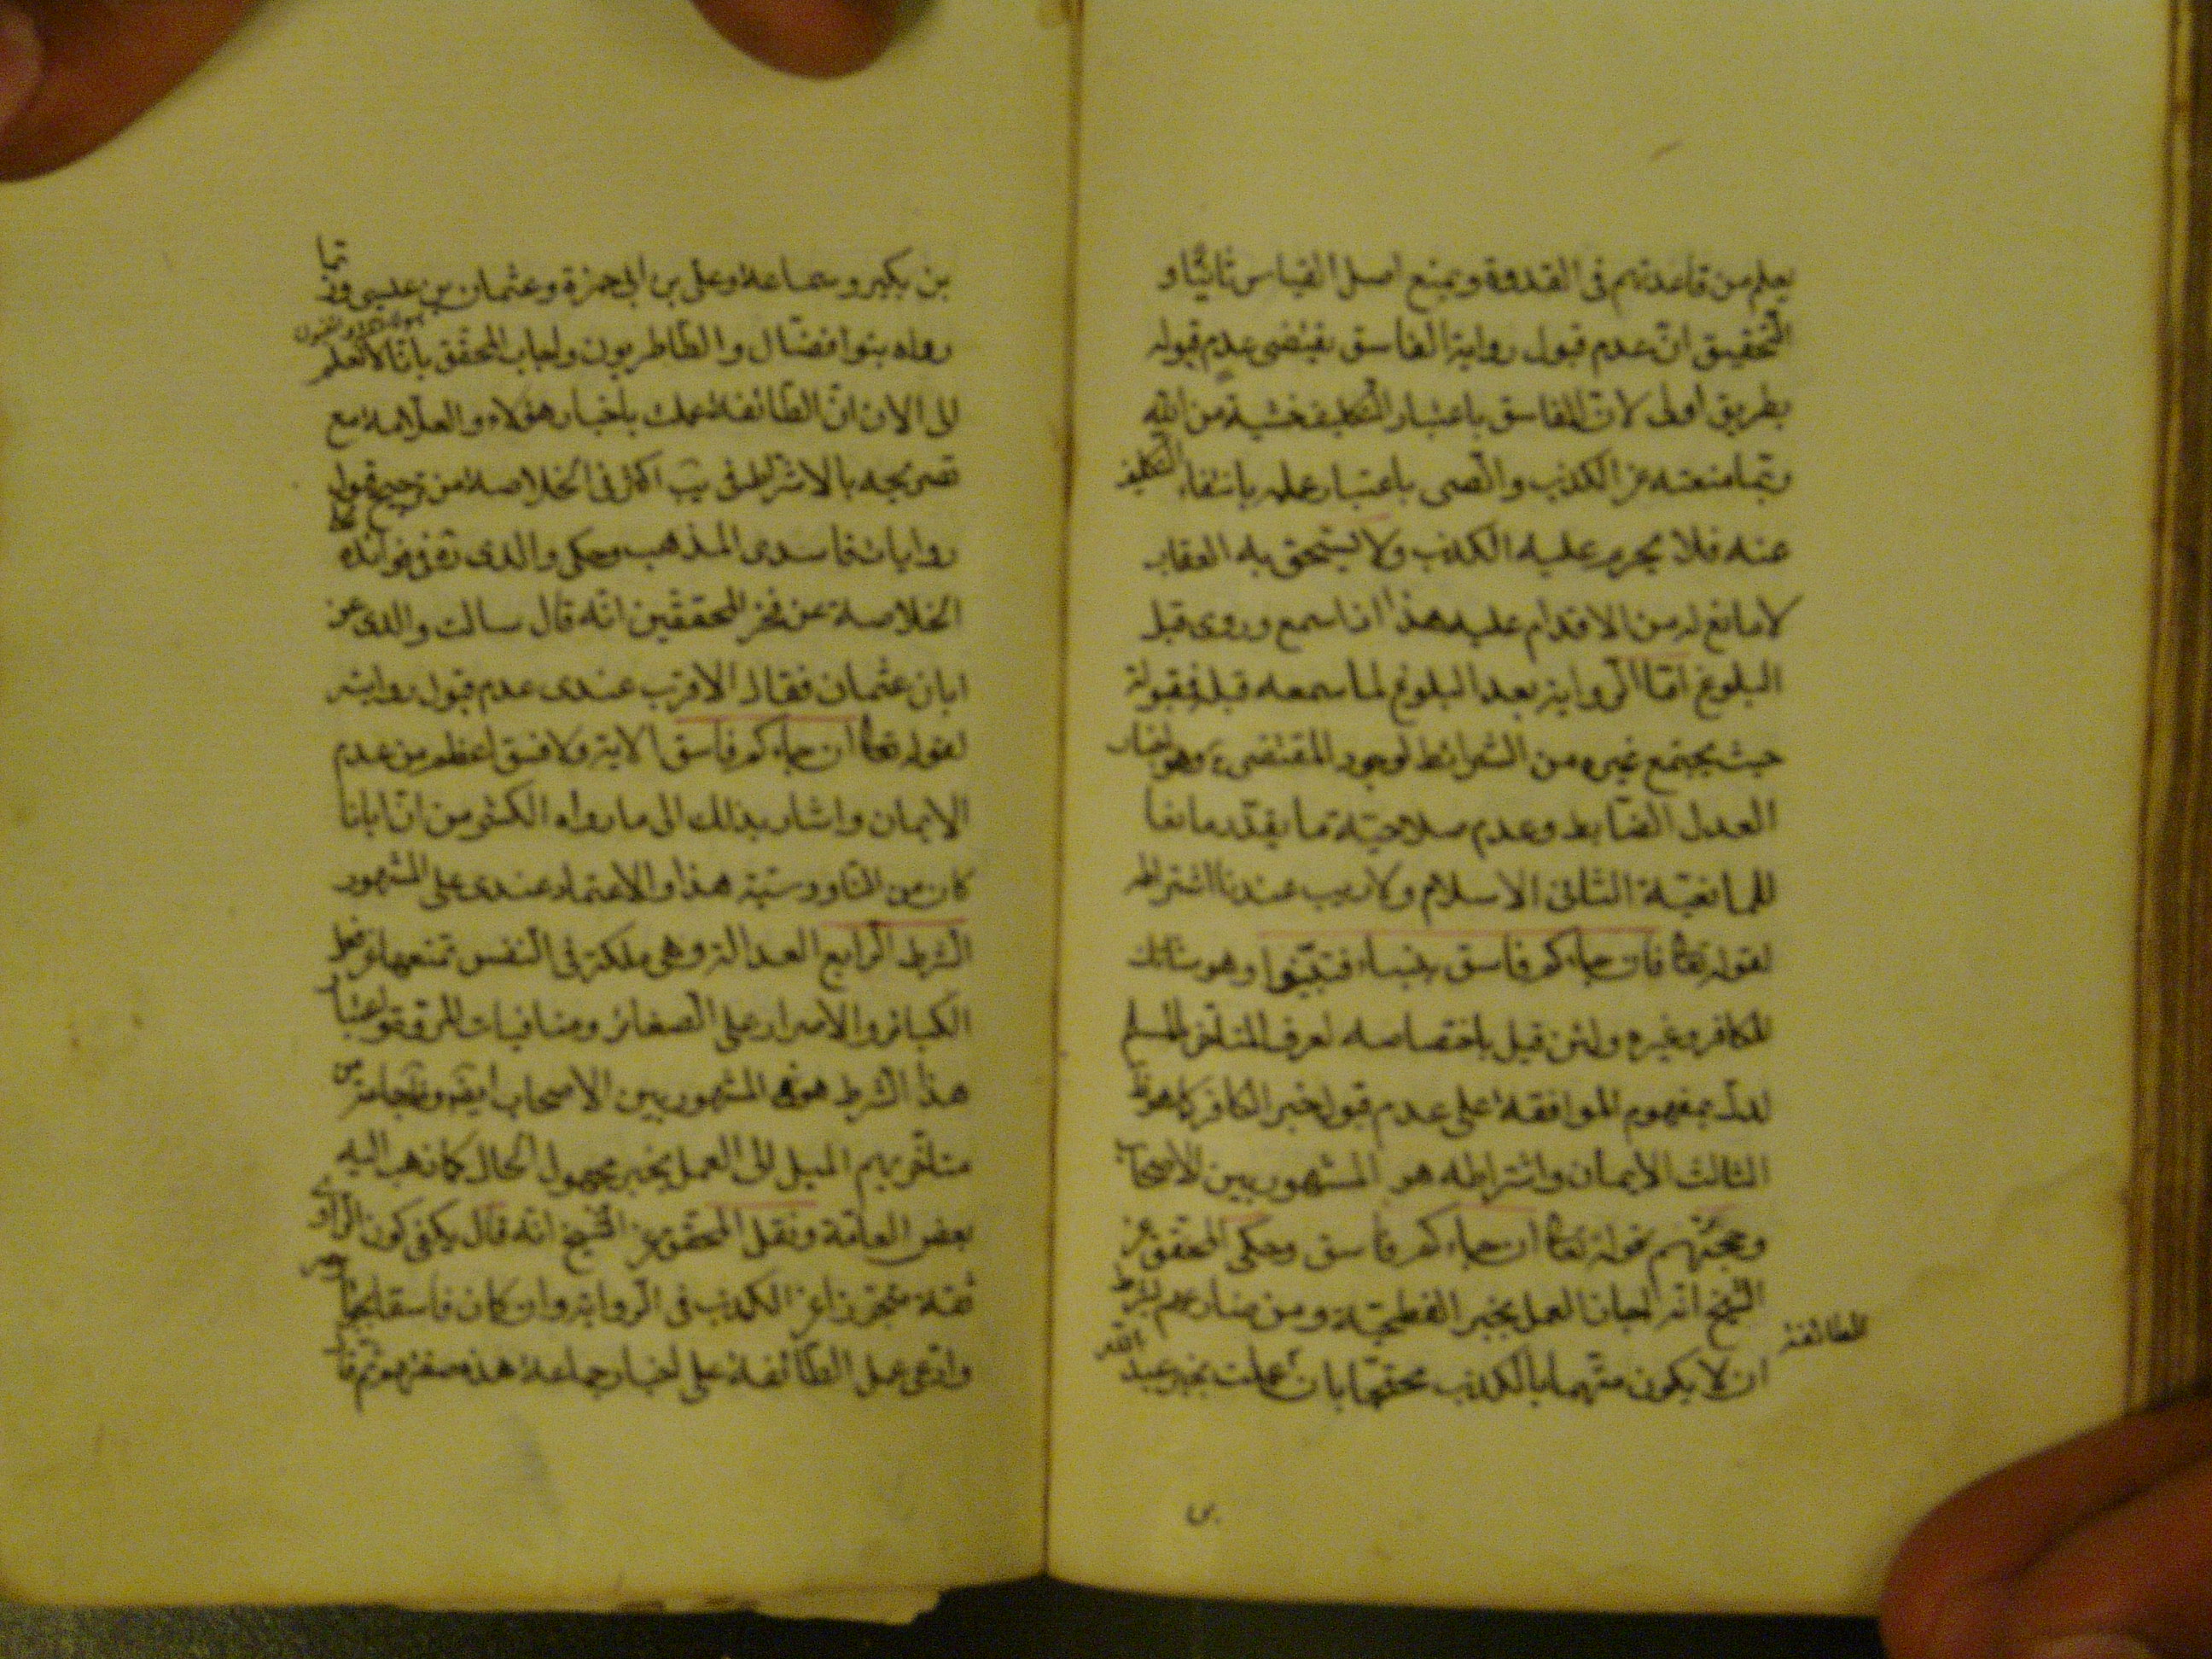 يعلم من قاعدتهم في القدوة ويمنع اصل القياس ثانيا و
التحقيق انّ عدم قبول رواية الفاسق يقتضى عدم قبوله
بطريق اولى لانّ للفاسق باعتبار التكليف خشية من الله
ربّما منعته عن الكذب والصبى باعتبار علمه بانتفاء التكليف
عنه فلا يحرم عليه الكذب ولا يستحق به العقاب
لا مانع له من الاقدام عليه هذا اذا سمع وروى قبل
البلوغ امّا الرواية بعد البلوغ لما سمعه قبله فمقبولة
حيث يجتمع غيره من الشرائط لوجود المقتضى وهو اخبار
العدل الضّابط وعدم صلاحيّة ما يقدّر مانعا
للمانعيّة الثانى الاسلام ولا ريب عندنا اشتراطه
لقوله تعا فان جاءكم فاسق بنباء فتبيّنوا وهو شامل
للكافر وغيره ولئن قيل باختصاصه لعرف المتاخر بالمسلم
لدلّ بمفهوم الموافقة على عدم قبول خبر الكافر كما هو ظ
الثالث الايمان واشتراطه هو المشهور بين الاصحاب
وحجّتهم قوله تعا ان جاءكم فاسق وحكى المحقق عن
الشيخ انه اجاز العمل بخبر الفطحيّة ومن ضارعهم بشرط
ان لا يكون متّهما بالكذب محتجّا بان عملت بخبر عبد الله
الطائفة
بن
بن بكير وسماعة وعلى بن ابى حمزة وعثمان بن عيسى وبما
رواه بنو افضّال والطّاطريون واجاب المحقّق بانّا لا نعلم
الى الان انّ الطّائفة عملت باخبار هؤلاء والعلّامة مع
تصريحه بالاشتراط في يب اكثر فى الخلاصة من ترجيح قبول
روايات فاسدى المذهب وحكى والدى ره في فوائده على
الخلاصة عن فخر المحققين انّه قال سالت والدى عن
ابان عثمان فقال الاقرب عندى عدم قبول روايته
لقوله تعا ان جاءكم فاسق الاية ولا فسق اعظم من عدم
الايمان واشار بذلك الى ما رواه الكشى من انّ ابانا
كان من الناووسيّة هذا والاعتماد عندى على المشهور
الشرط الرابع العدالة وهى ملكة فى النفس تمنعها من فعل
الكبائر والاصرار على الصغائر ومنافيات المروّة واعتبار
هذا الشرط هو المشهور بين الاصحاب ايضا وظ جماعة من
متاخّريهم الميل الى العمل بخبر مجهول الحال كما ذهب اليه
بعض العامّة ونقل المحقق عن الشيخ انّه قال يكفى كون الراوى
ثقة متحرزا عن الكذب فى الرواية وان كان فاسقا بجوارحه
وادّعى عمل الطّائفة على اخبار جماعة هذه صفتهم ثم قال